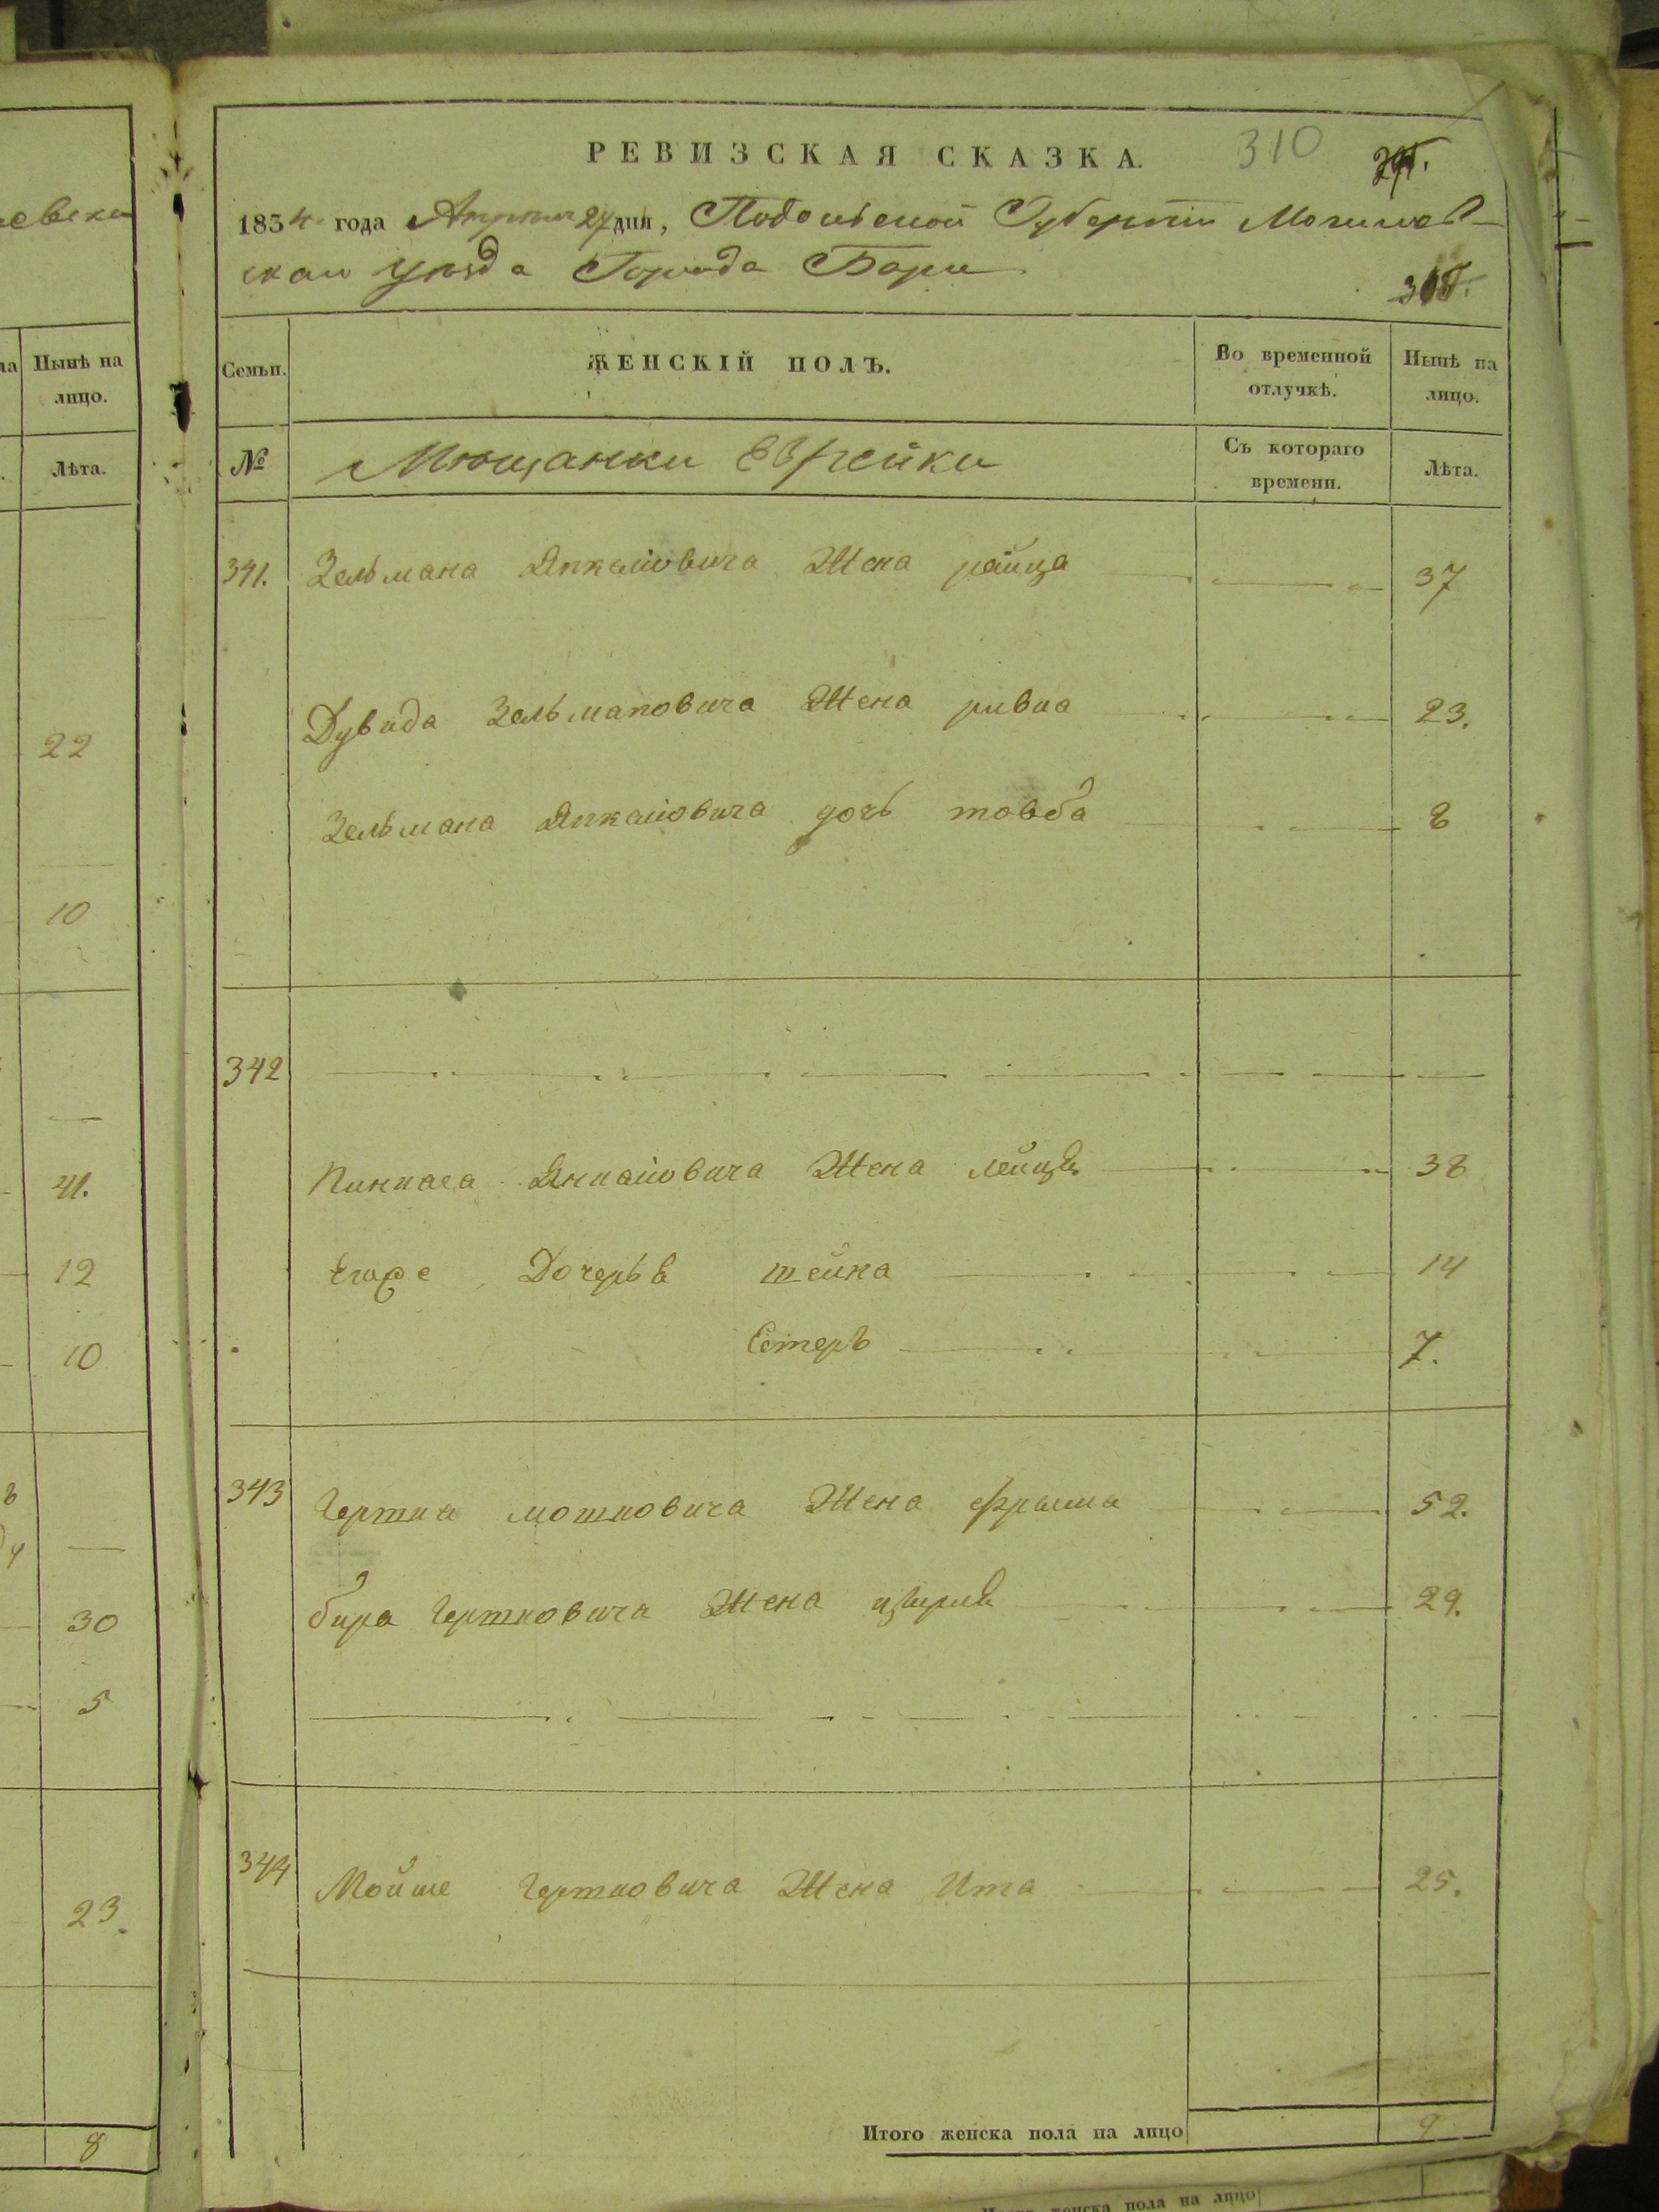 РЕВИЗСКАЯ СКАЗКА.
310
1834 года Апреля 27 дня, Подольской Губернии Могилев-
скаго уезда Города Бара
Нынѣ на
лицо.
Лѣта.
22
10
41.
12
10
30
5
23.
8
Семьи. ЖЕНСКІЙ ПОЛЪ. Во временной отлучкѣ. Нынѣ на лицо.
№ Мѣщанки Еврейки Съ котораго времени. Лѣта.
341. Зельмана Янкелiовича Жена райца 37
Дувида Зельмановича Жена ривка 23.
Зельмана Янкелiовича дочь товба 8
342
Пинкаса Янкелiовича Жена лейця 38
Егоже Дочерьи шейна 14
Естеръ 7.
343 Гершка мошковича Жена фрыма 52.
бира Гершковича Жена 29.
344 Мойше Гершковича Жена Ита 25.
Итого женска пола на лицо 9
женска пола на лицо